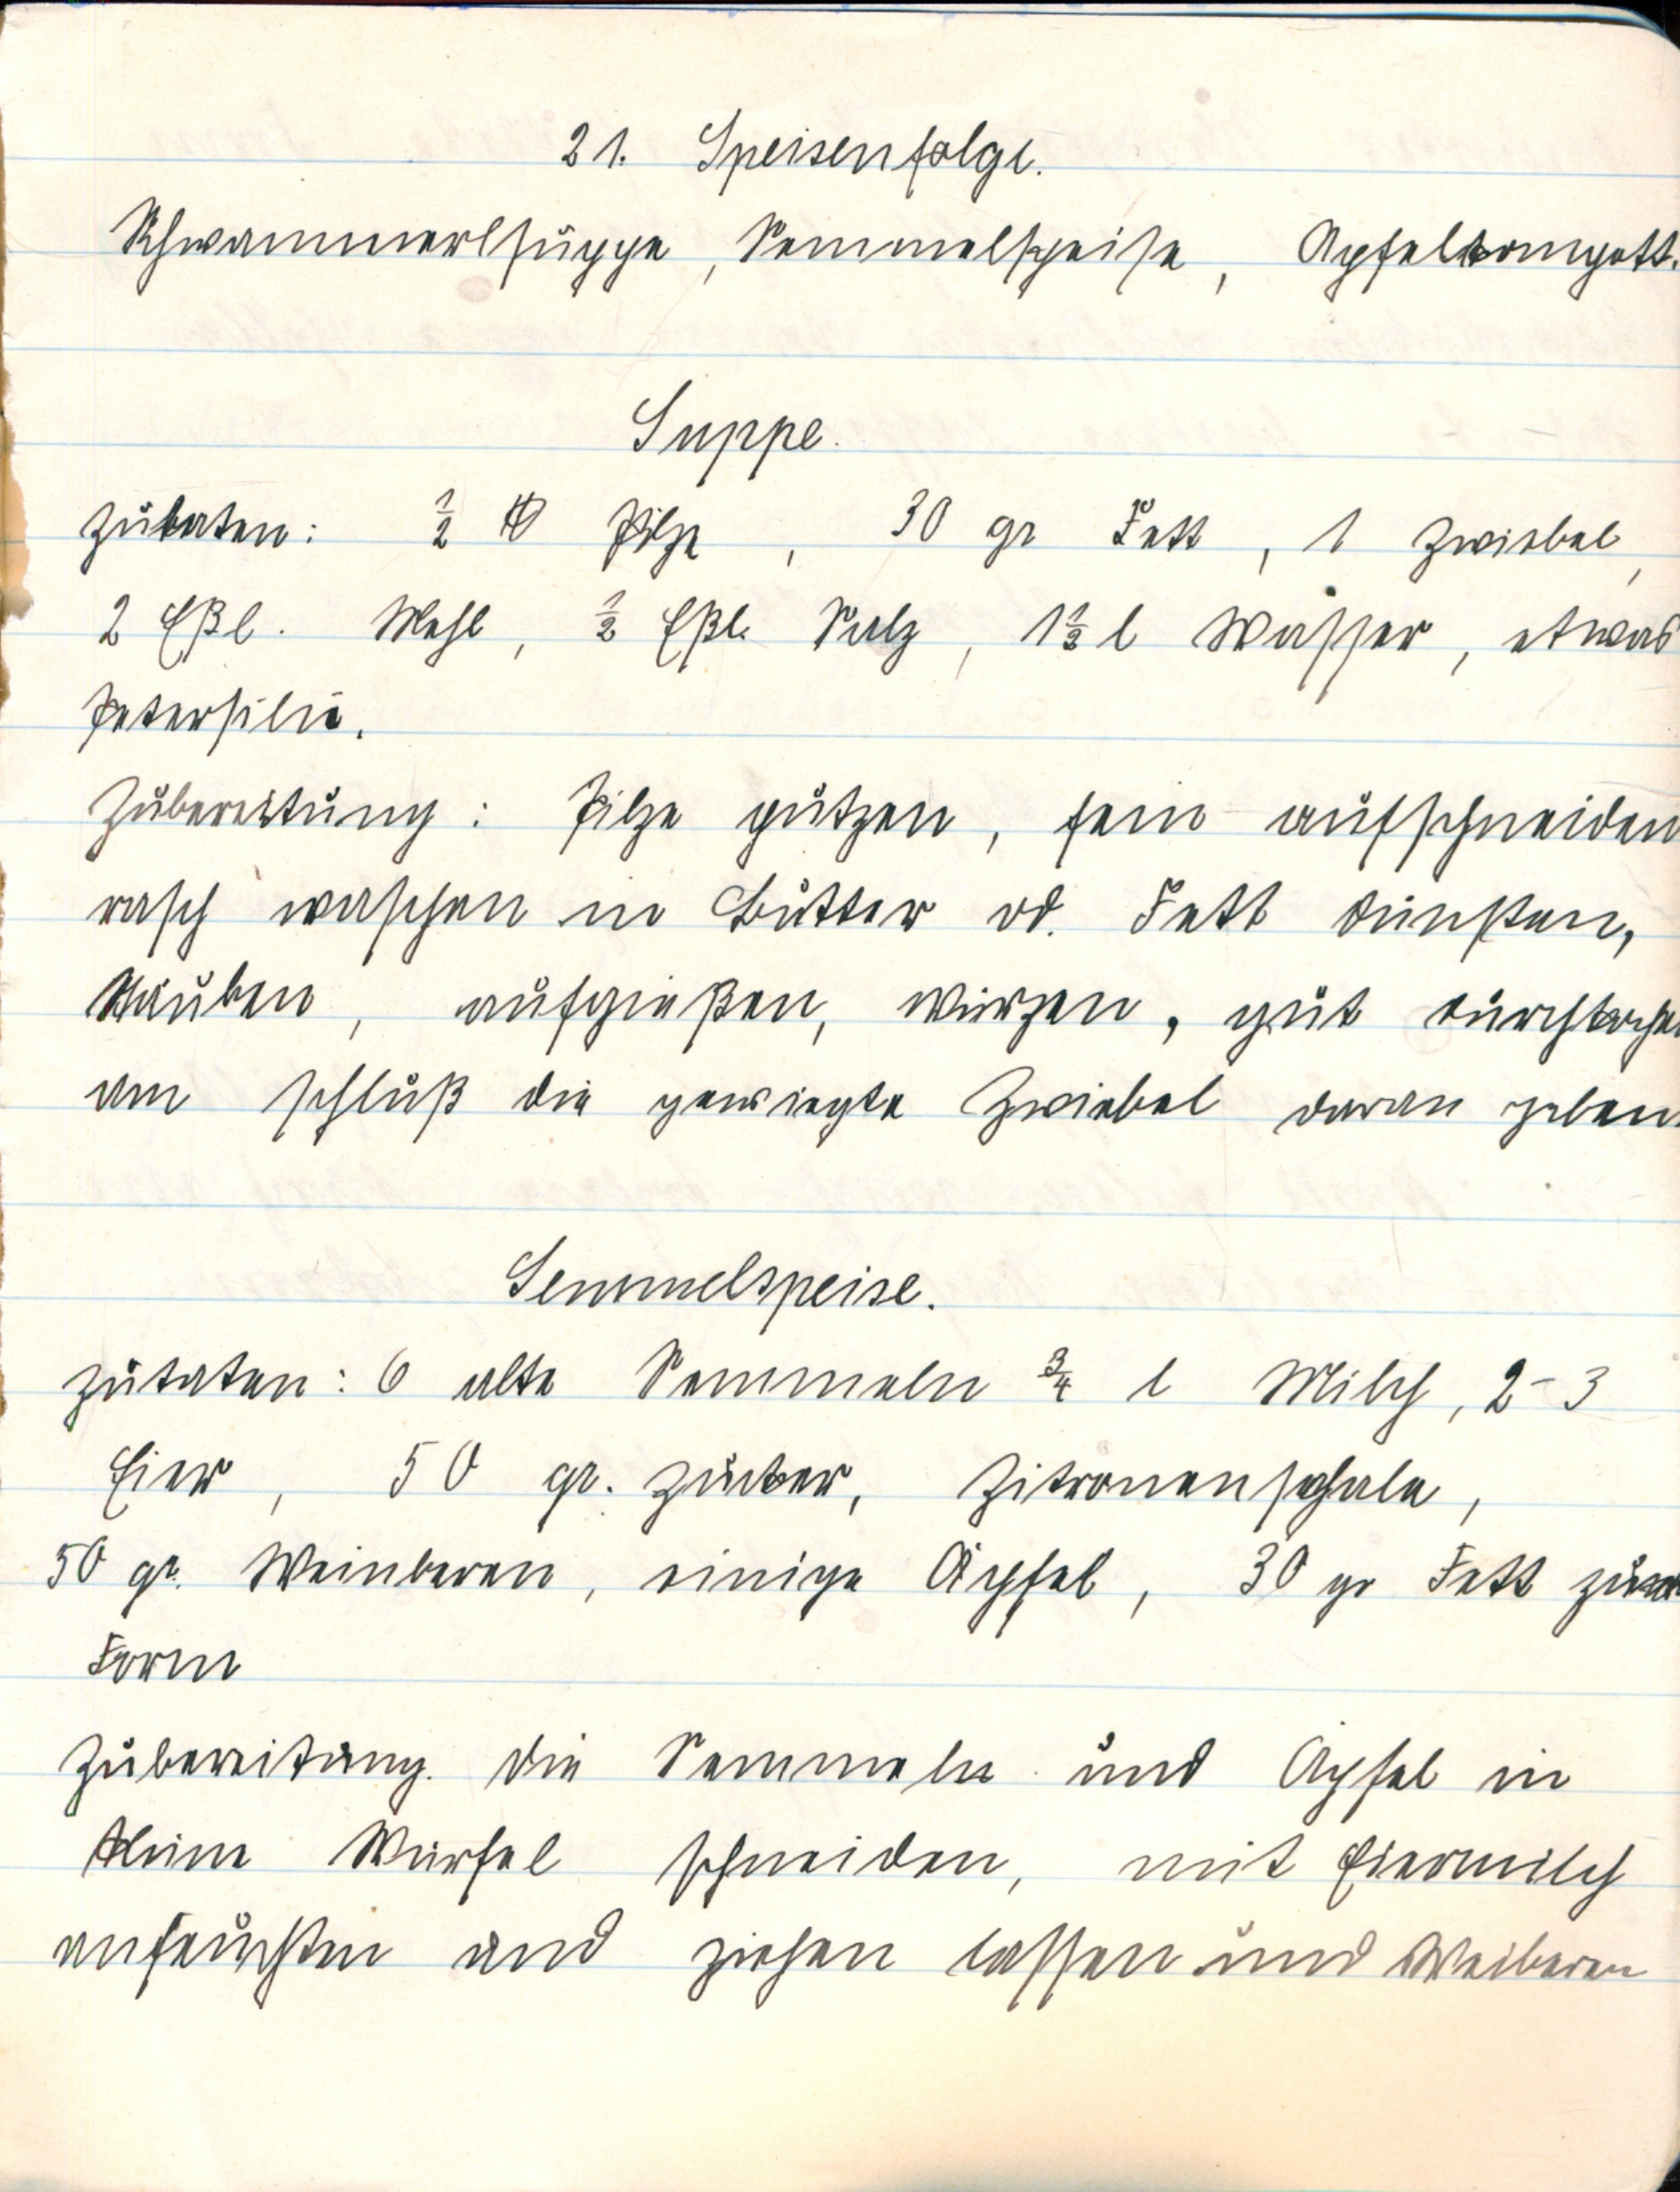 21. Speisenfolge.
Schwammerlsuppe, Semmelspeise, Apfelkompott.
Suppe.
Zutaten: ½ ℔ Pilze, 30 gr Fett, 1 Zwiebel,
2 Eßl. Mehl, ½ Eßl. Salz, 1½ l Wasser, etwas
Petersilie.
Zubereitung: Pilze putzen, fein aufschneiden
rasch waschen in Butter od. Fett dünsten,
stauben, aufgießen, würzen, gut durchkochen
am schluß die gewiegte Zwiebel daran geben.
Semmelspeise.
Zutaten: 6 alte Semmeln ¾ l Milch, 2-3
Eier, 50 gr. Zucker, Zitronenschale,
50 gr. Weinberen, einige Äpfel, 30 gr Fett zur
Form
Zubereitung. Die Semmeln und Äpfel in
kleine Würfel schneiden, mit Eiermilch
anfeuchten und ziehen lassen und Weiberen